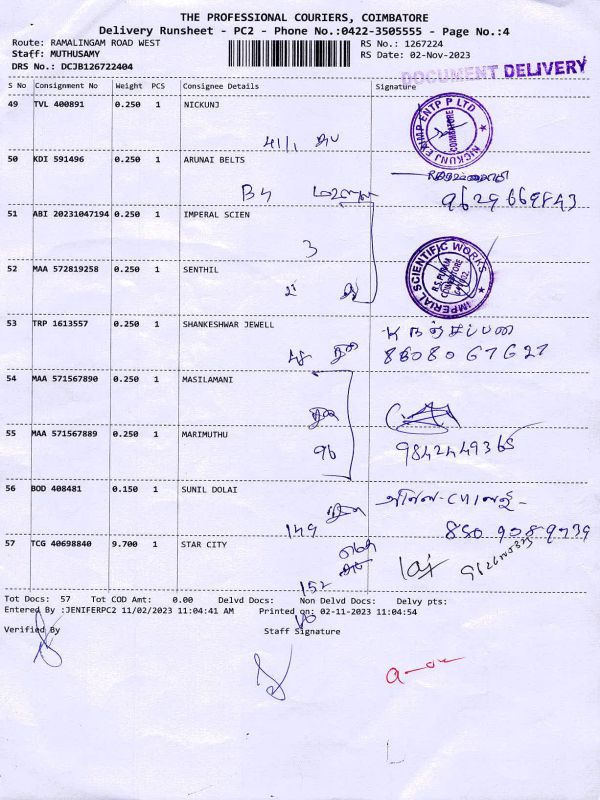 THE PROFESSIONAL COURIERS, COIMBATORE
Delivery Runsheet - PC2 - Phone No.:0422-3505555 - Page No.:4
Route: RAMALINGAM ROAD WEST RS No.: 1267224
Staff: MUTHUSAMY RS Date: 02-Nov-2023
DRS No.: DCJB126722404
DOCUMENT DELIVERY
S No Consignment No Weight PCS Consignee Details Signature
49 TVL 400891 0.250 1 NICKUNJ
NICKUNJ EXIMP ENTP P LTD
COIMBATORE
41/1
50 KDI 591496 0.250 1 ARUNAI BELTS
B4
9629669843
51 ABI 20231047194 0.250 1 IMPERAL SCIEN
3
IMPERIAL SCIENTIFIC WORKS
R.S. PURAM
COIMBATORE
52 MAA 572819258 0.250 1 SENTHIL
21
53 TRP 1613557 0.250 1 SHANKESHWAR JEWELL
8808067627
54 MAA 571567890 0.250 1 MASILAMANI
55 MAA 571567889 0.250 1 MARIMUTHU
96 9842449365
56 BOD 408481 0.150 1 SUNIL DOLAI
149 8509089739
57 TCG 40698840 9.700 1 STAR CITY
152
Tot Docs: 57 Tot COD Amt: 0.00 Delvd Docs: Non Delvd Docs: Delvy pts:
Entered By :JENIFERPC2 11/02/2023 11:04:41 AM Printed on: 02-11-2023 11:04:54
Verified By Staff Signature